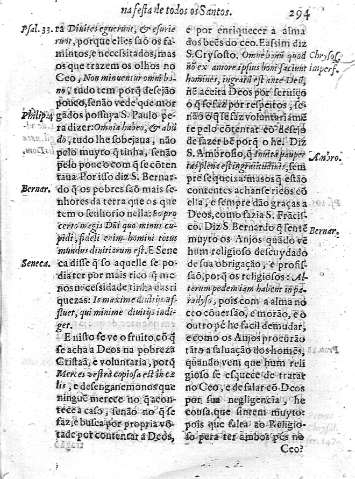 na festa de todos os Santos.
294
Psal. 33.
Philip. 4
Bernar.
Seneca.
ra Divites eguerunt, & esurie
runt, porque elles saõ os fa-
mintos, e necessitados, mas
os que trazem os olhos no
Ceo, Non minuentur omni bo
no, tudo tem porq̃ desejão
pouco, senão vede que mor
gados possuya S. Paulo pe-
ra dizer: Omnia habeo, & abũ
do, tudo lhe sobejaua, não
pelo muyto q̃ tinha, senão
pelo pouco com que se cõten
taua. Por isso diz S. Bernar
do q̃ os pobres saõ mais se-
nhores da terra que os que
tem o senhorio nella:
pidi, fideli enim homini totus
mundus divitiarum est. E Sene
ca disse q̃ so aquelle se po-
dia ter por mais rico q̃ me
nos necessidade tinha das ri
quezas: Is maxime divitijs af-
fluet, qui minime divitijs indi-
get.
E nisto se ve o fruito, cõ q̃
se acha a Deos na pobreza
Cristaã, e voluntaria, porq̃
Merces vestra copiosa est in cæ
lis, e desenganemonos que
ninguẽ merece no q̃ acon-
tece a caso, senão no q̃ se
faz, e busca por propria võ
tade por contentar a Deos,
e por enriquecer a alma
dos beẽs do ceo. E assim diz
S. Crysosto. Omne bonũ quod
nõ ex amore ipsius boni faciunt
homines, ingratũ est ante Deũ,
nẽ aceita Deos por seruiço
o q̃ se faz por respeitos, se-
não o q̃ se faz voluntariamẽ
te pelo cõtentar, cõ desejo
de fazer bẽ por q̃ he. Diz
S. Ambrosio, q̃
sem pre sequeixa: mas os q̃ estão
contentes achanse ricos cõ
ella, e sempre dão graças a
Deos, como fazia S. Frãcis-
co. Diz S. Bernardo q̃ sentẽ
muyto os Anjos quãdo vẽ
hum religioso descuydado
de sua obrigação, e profis-
são, porq̃ os religiosos: Al-
terum pedem iam habent in pa-
radyso, pois com a alma no
ceo cõuersão, e morão, e o
outro pè he facil de mudar,
e como os Anjos procurão
tãto a saluação dos homẽs,
quando vem que hum reli
gioso se esquece de tratar
no Ceo, e de falar cõ Deos
por sua negligencia, he
cousa que sintem muyto:
pois que falta ao Religio-
so pera ter ambos pès no
Ceo?
Chrysos.
imperf.
Ambro.
Bernar.